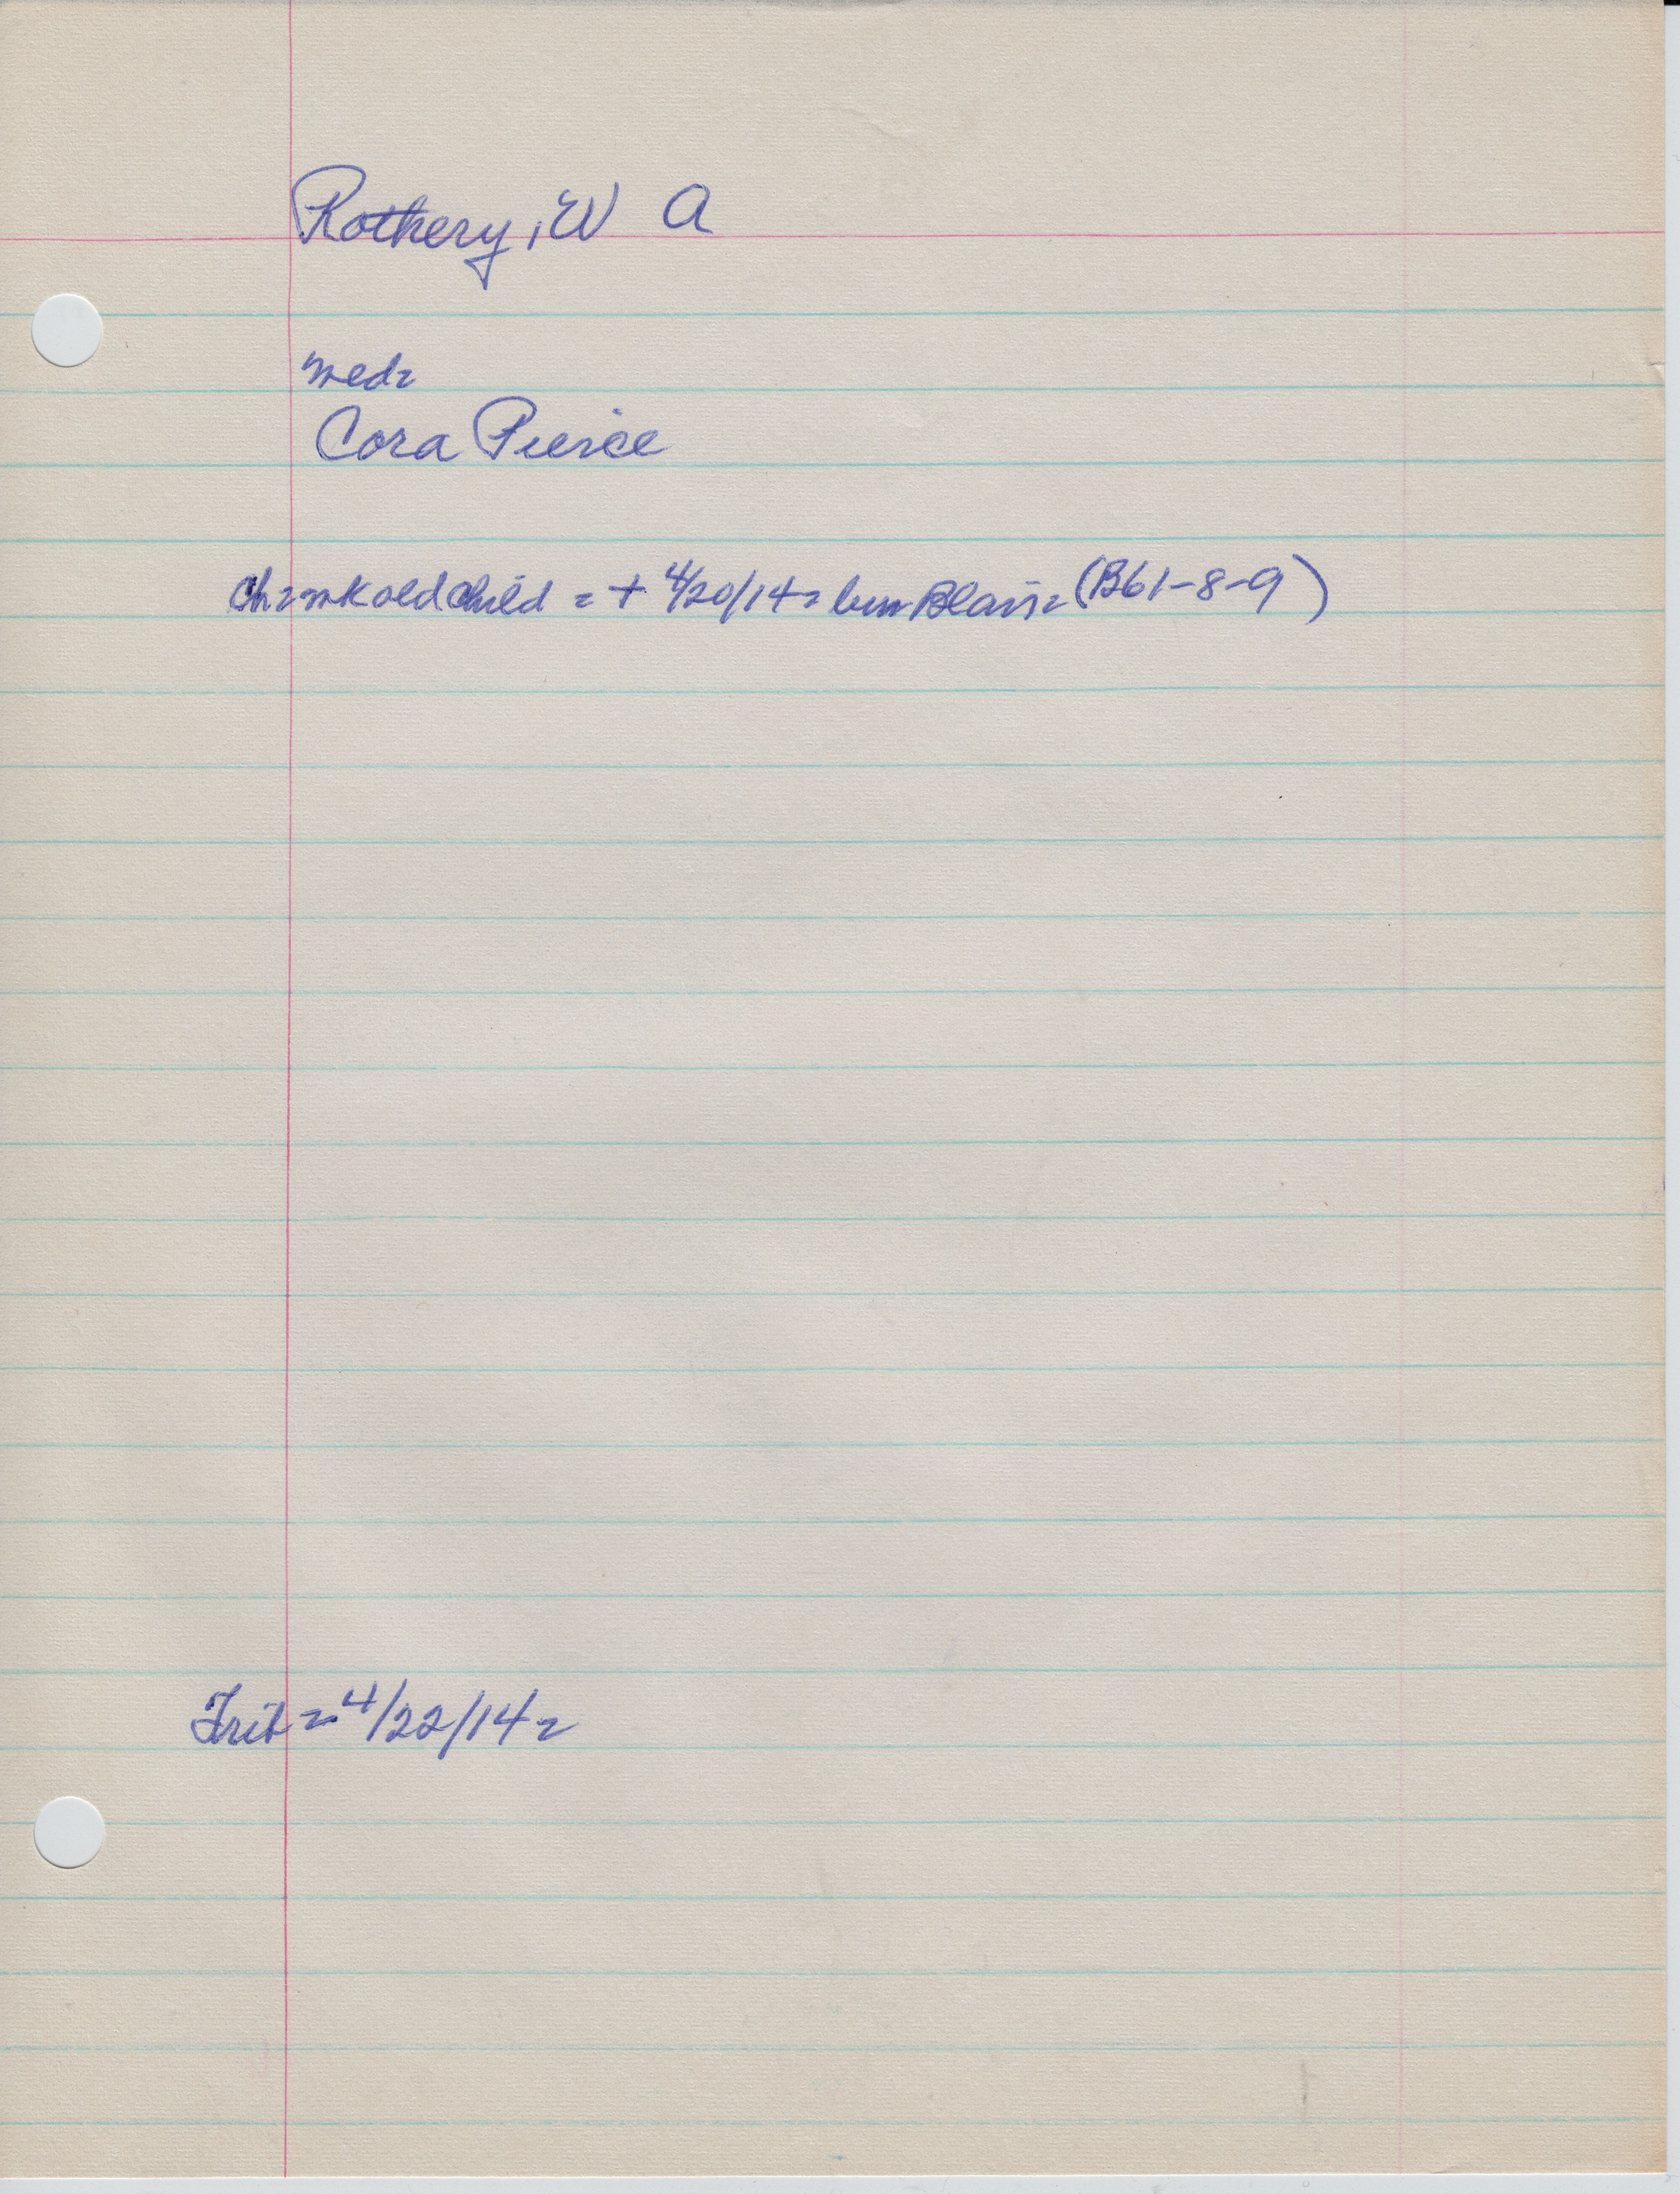 Rothery, W A
med=
Cora Pierce
Ch= wk old child = + 4/20/14 = bur Blair = (B61-8-9)
Trib = 4/22/14 =